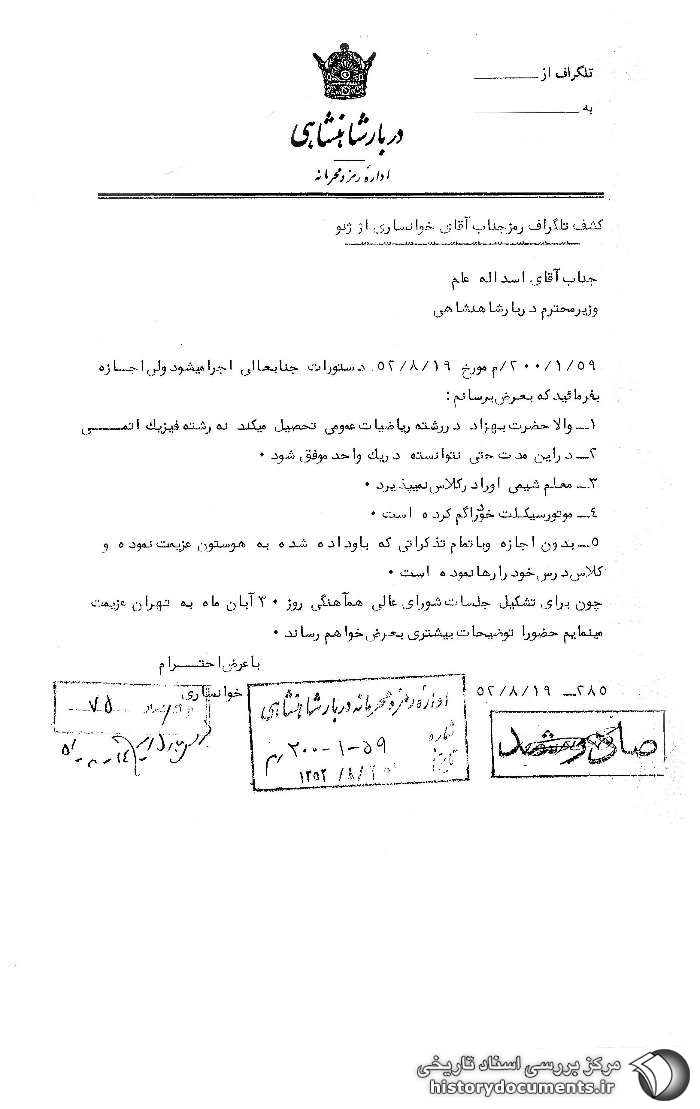 تلگراف از
به
دربار شاهنشاهی
اداره رمز و محرمانه
کشف تلگراف رمز جناب آقای خوانساری از ژنو
جناب آقای اسداله علم
وزیر محترم دربار شاهنشاهی
۲۰۰/۱/۵۹/م مورخ ۵۲/۸/۱۹ دستورات جنابعالی اجرا میشود ولی اجازه
بفرمائید که بعرض برسانم :
۱ــ والا حضرت بهزاد در رشته ریاضیات عمومی تحصیل میکند نه رشته فیزیک اتمــی
۲ــ در این مدت حتی نتوانسته در یک واحد موفق شود ۰
۳ــ معلم شیمی او را در کلاس نمیپذیرد ۰
۴ــ موتورسیکلت خود را گم کرده است ۰
۵ــ بدون اجازه و با تمام تذکراتی که باو داده شده به هوستون عزیمت نموده و
کلاس درس خود را رها نموده است ۰
چون برای تشکیل جلسات شورای عالی همآهنگی روز ۳۰ آبان ماه به تهران عزیمت
مینمایم حضورا توضیحات بیشتری بعرض خواهم رساند ۰
با عرض احتــرام
خوانساری
۲۸۵ــ ۵۲/۸/۱۹
۷۵
اداره رمز و محرمانه دربار شاهنشاهی
شماره ۲۰۰-۱-۵۹/م
تاریخ
صادق وشد
مرکز بررسی اسناد تاریخی
historydocuments.ir